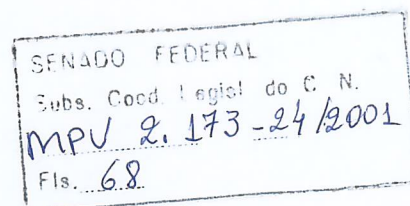 SENADO FEDERAL
Subs. Coord. Legisl. do C. N.
MPV 2.173-24/2001
Fls. 68